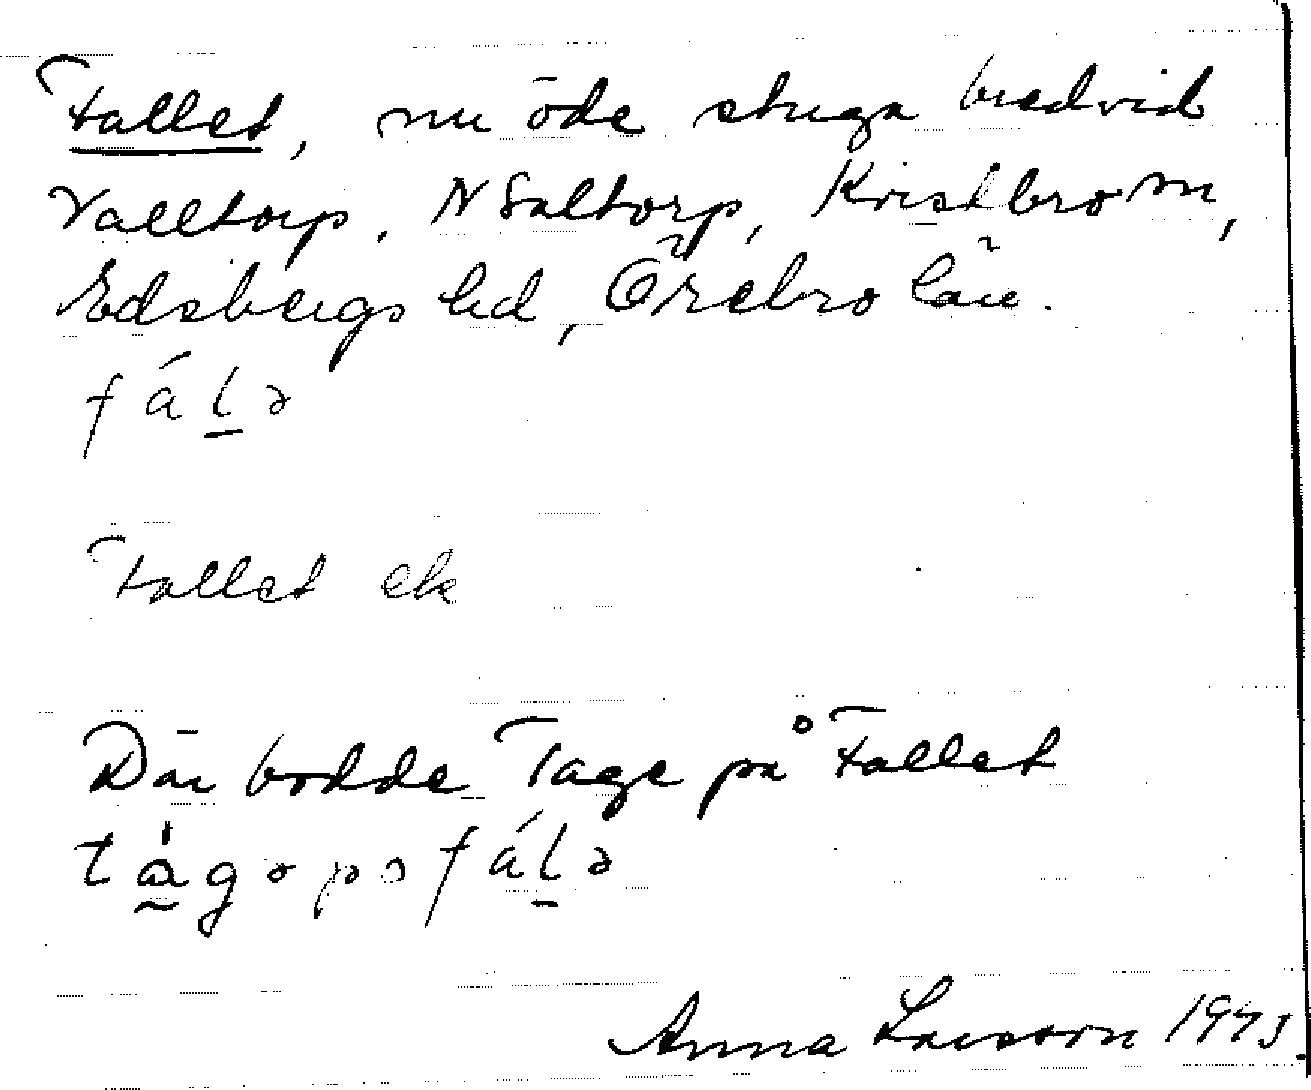 Fallet, nu öde stuga bredvid
Valltorp, N Saltorp, Kvistbro sn,
Edsbergs hd, Örebro län.
fál̠ə
Fallet ek
Där bodde Tage på Fallet
tágə pɔ fál̠ə
Anna Larsson